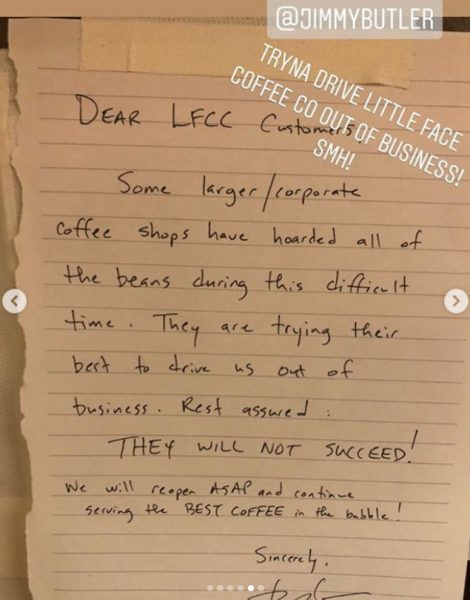 @JIMMYBUTLER
TRYNA DRIVE LITTLE FACE
COFFEE CO OUT OF BUSINESS!
SMH!
DEAR LFCC Customers,
Some larger/corporate
coffee shops have hoarded all of
the beans during this difficult
time. They are trying their
best to drive us out of
business. Rest assured:
THEY WILL NOT SUCCEED!
We will reopen ASAP and continue
serving the BEST COFFEE in the bubble!
Sincerely,